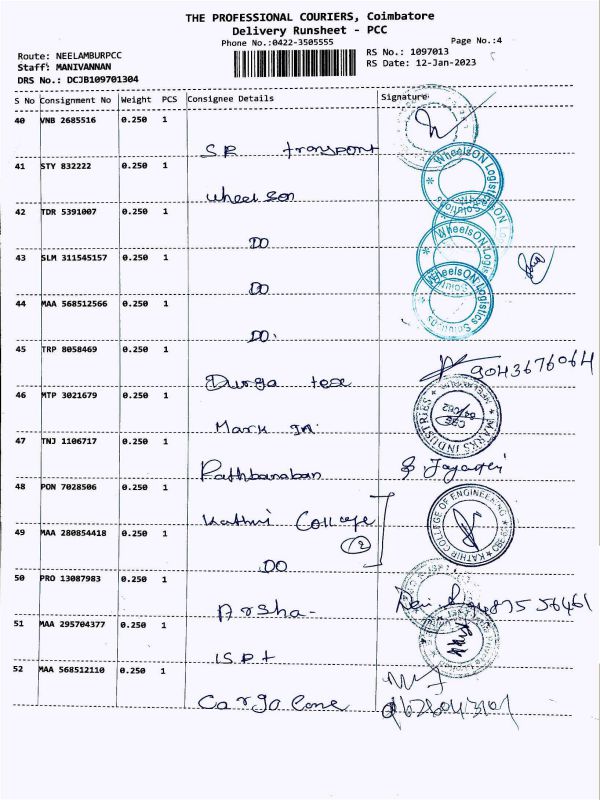 THE PROFESSIONAL COURIERS, Coimbatore
Delivery Runsheet - PCC
Phone No.:0422-3505555 Page No.:4
Route: NEELAMBURPCC RS No.: 1097013
Staff: MANIVANNAN RS Date: 12-Jan-2023
DRS No.: DCJB109701304
S No Consignment No Weight PCS Consignee Details Signature
40 VNB 2685516 0.250 1
SR transport
41 STY 832222 0.250 1
wheelson
WheelsON Logistics
42 TDR 5391007 0.250 1
DO
43 SLM 311545157 0.250 1
DO
WheelsON Logistics
44 MAA 568512566 0.250 1
DO.
WheelsON Logistics Solutions
45 TRP 8058469 0.250 1
Durga tex 9043676064
46 MTP 3021679 0.250 1
Mark In.
MARKS INDUSTRIES
CBE 641062
47 TNJ 1106717 0.250 1
48 PON 7028506 0.250 1
Kathir College
KATHIR COLLEGE OF ENGINEERING
(2)
49 MAA 280854418 0.250 1
DO
50 PRO 13087983 0.250 1
Arsha-
51 MAA 295704377 0.250 1
52 MAA 568512110 0.250 1